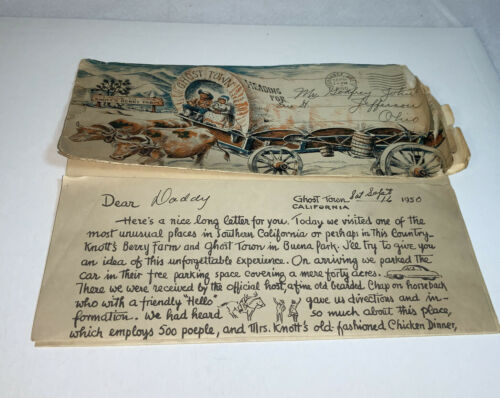 GHOST TOWN
KNOTT'S BERRY FARM
HEADING FOR
Mr. Godfrey John
Jefferson
Ohio
Dear Daddy
Ghost Town, Sat Sept 16 1950
CALIFORNIA
Here's a nice long letter for you. Today we visited one of the
most unusual places in Southern California or perhaps in this Country
Knott's Berry Farm and Ghost Town in Buena Park. I'll try to give you
an idea of this unforgettable experience. On arriving we parked the
car in their free parking space covering a mere forty acres.
There we were received by the official host, a fine old bearded Chap on horseback
who with a friendly "Hello" gave us directions and in-
formation. We had heard so much about this place,
which employs 500 poeple, and Mrs. Knott's old-fashioned Chicken Dinner,